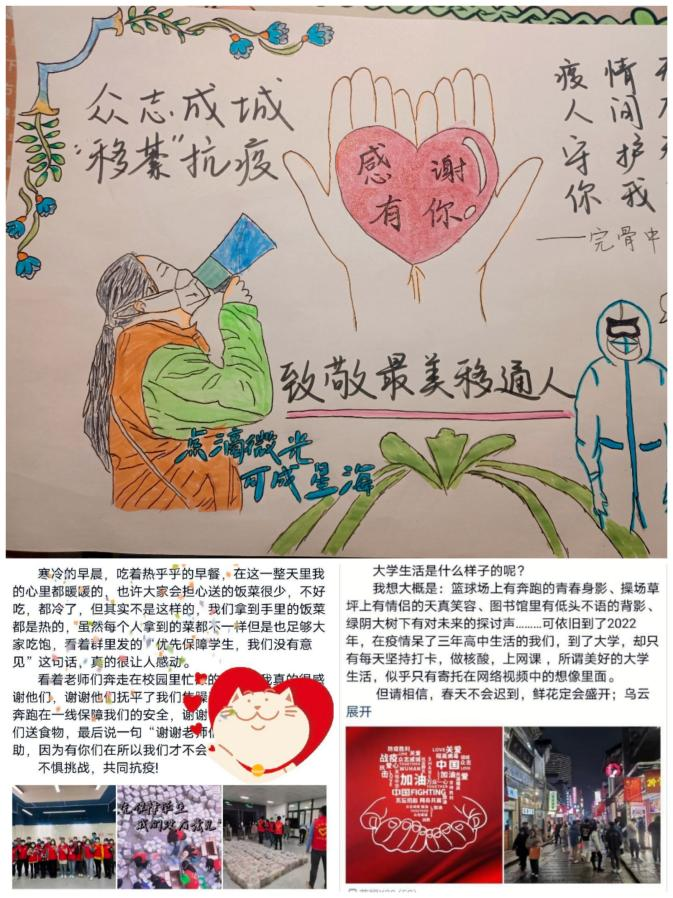 众志成城
“移綦”抗疫
感谢
有你
疫情
人间
守护
你我
——完骨中
致敬最美移通人
点滴微光
可成星海
寒冷的早晨，吃着热乎乎的早餐，在这一整天里我
的心里都暖暖的，也许大家会担心送的饭菜很少，不好
吃，都冷了，但其实不是这样的，我们拿到手里的饭菜
都是热的，虽然每个人拿到的菜都不一样但是也足够大
家吃饱，看着群里发的“优先保障学生，我们没有意
见”这句话，真的很让人感动。
看着老师们奔走在校园里忙
谢他们，谢谢他们抚平了我们
奔跑在一线保障我们的安全，谢谢
们送食物，最后说一句“谢谢老师
助，因为有你们在所以我们才不会
不惧挑战，共同抗疫!
大学生活是什么样子的呢?
我想大概是：篮球场上有奔跑的青春身影、操场草
坪上有情侣的天真笑容、图书馆里有低头不语的背影、
绿阴大树下有对未来的探讨声………可依旧到了2022
年，在疫情呆了三年高中生活的我们，到了大学，却只
有每天坚持打卡，做核酸，上网课 ，所谓美好的大学
生活，似乎只有寄托在网络视频中的想像里面。
但请相信，春天不会迟到，鲜花定会盛开；乌云
展开
战疫
加油
中国
加油
中国FIGHTING
LOVE关爱